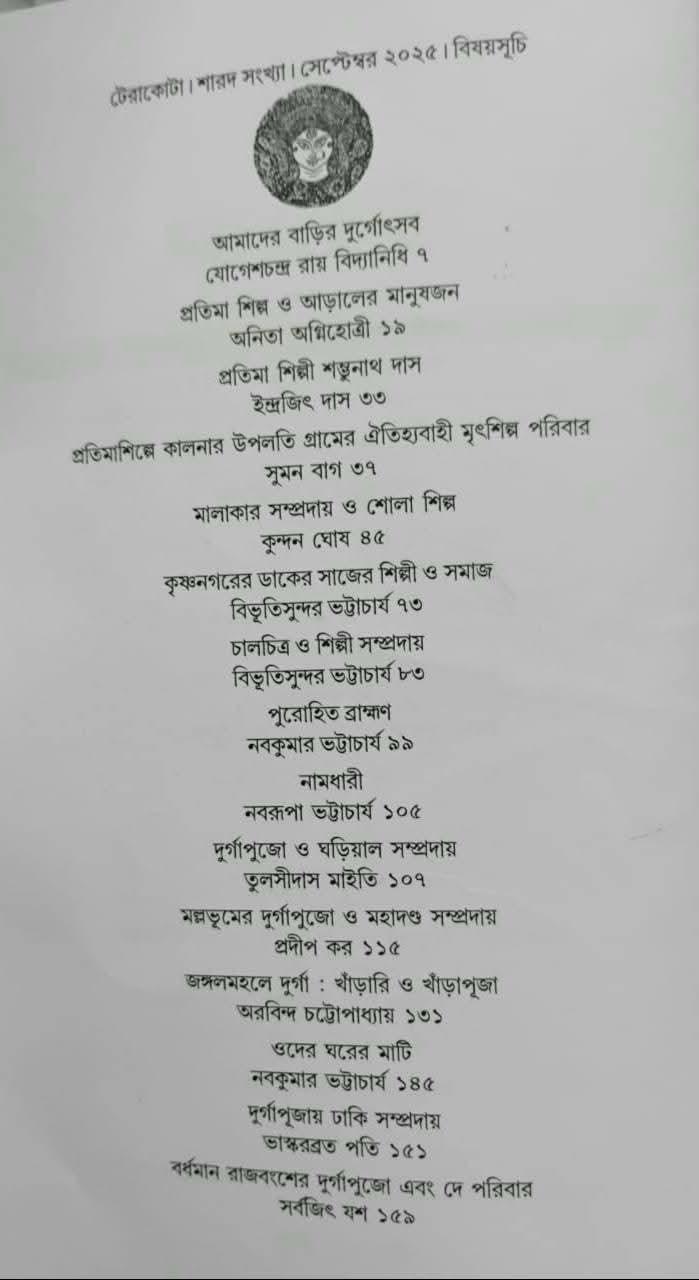 টেরাকোটা । শারদ সংখ্যা । সেপ্টেম্বর ২০২৫ । বিষয়সূচি
আমাদের বাড়ির দুর্গোৎসব
যোগেশচন্দ্র রায় বিদ্যানিধি ৭
প্রতিমা শিল্প ও আড়ালের মানুষজন
অনিতা অগ্নিহোত্রী ১৯
প্রতিমা শিল্পী শম্ভুনাথ দাস
ইন্দ্রজিৎ দাস ৩৩
প্রতিমাশিল্পে কালনার উপলতি গ্রামের ঐতিহ্যবাহী মৃৎশিল্প পরিবার
সুমন বাগ ৩৭
মালাকার সম্প্রদায় ও শোলা শিল্প
কুন্দন ঘোষ ৪৫
কৃষ্ণনগরের ডাকের সাজের শিল্পী ও সমাজ
বিভূতিসুন্দর ভট্টাচার্য ৭৩
চালচিত্র ও শিল্পী সম্প্রদায়
বিভূতিসুন্দর ভট্টাচার্য ৮৩
পুরোহিত ব্রাহ্মণ
নবকুমার ভট্টাচার্য ৯৯
নামধারী
নবরূপা ভট্টাচার্য ১০৫
দুর্গাপুজো ও ঘড়িয়াল সম্প্রদায়
তুলসীদাস মাইতি ১০৭
মল্লভূমের দুর্গাপুজো ও মহাদণ্ড সম্প্রদায়
প্রদীপ কর ১১৫
জঙ্গলমহলে দুর্গা : খাঁড়ারি ও খাঁড়াপূজা
অরবিন্দ চট্টোপাধ্যায় ১৩১
ওদের ঘরের মাটি
নবকুমার ভট্টাচার্য ১৪৫
দুর্গাপূজায় ঢাকি সম্প্রদায়
ভাস্করব্রত পতি ১৫১
বর্ধমান রাজবংশের দুর্গাপুজো এবং দে পরিবার
সর্বজিৎ যশ ১৫৯